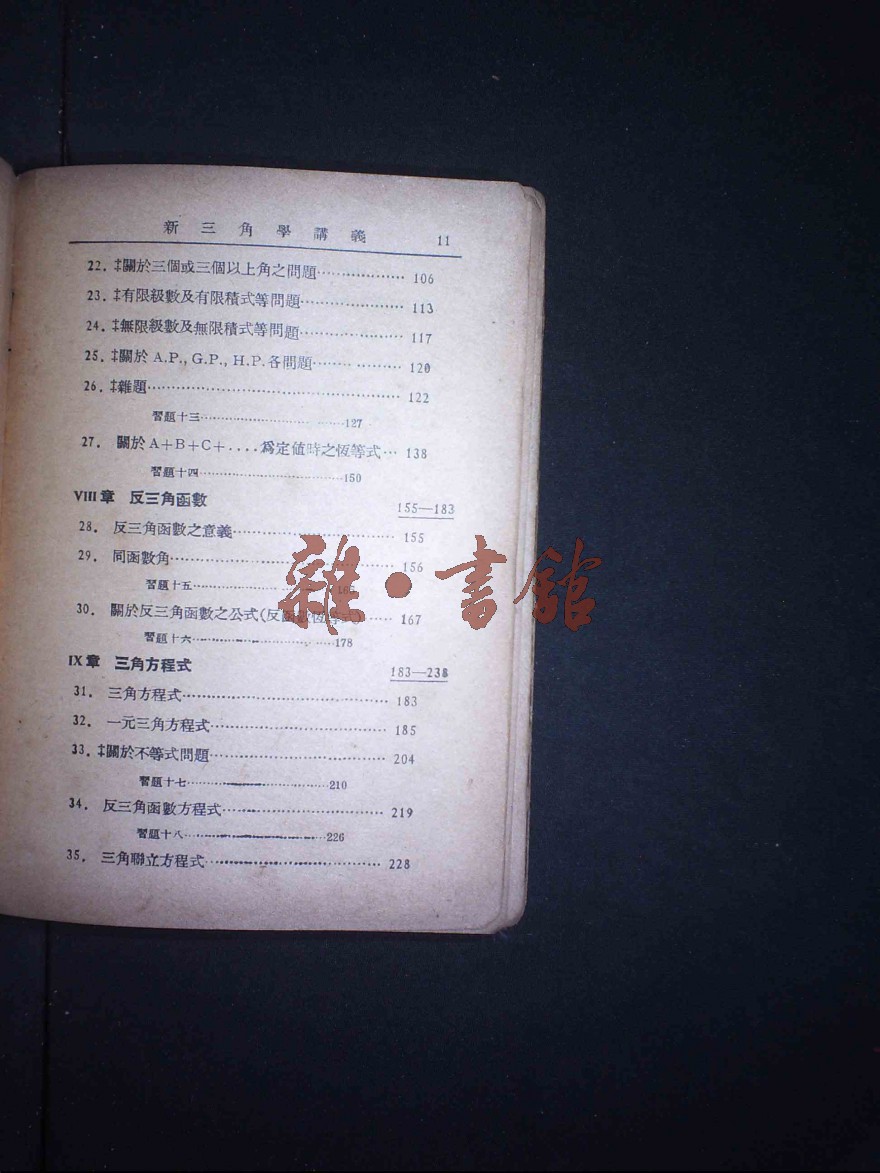 新三角學講義 11
22. ‡關於三個或三個以上角之問題……………… 106
23. ‡有限級數及有限積式等問題………………… 113
24. ‡無限級數及無限積式等問題………………… 117
25. ‡關於 A.P., G.P., H.P. 各問題……………… 120
26. ‡雜題………………………………………… 122
習題十三………………………127
27. 關於 A+B+C+....爲定值時之恆等式… 138
習題十四………………………150
VIII章 反三角函數 155—183
28. 反三角函數之意義………………………… 155
29. 同函數角…………………………………… 156
習題十五………………………
30. 關於反三角函數之公式(反函數恆等式)…… 167
習題十六………………………178
IX章 三角方程式 183—238
31. 三角方程式………………………………… 183
32. 一元三角方程式…………………………… 185
33. ‡關於不等式問題…………………………… 204
習題十七………………………210
34. 反三角函數方程式………………………… 219
習題十八………………………226
35. 三角聯立方程式…………………………… 228
雜•書館